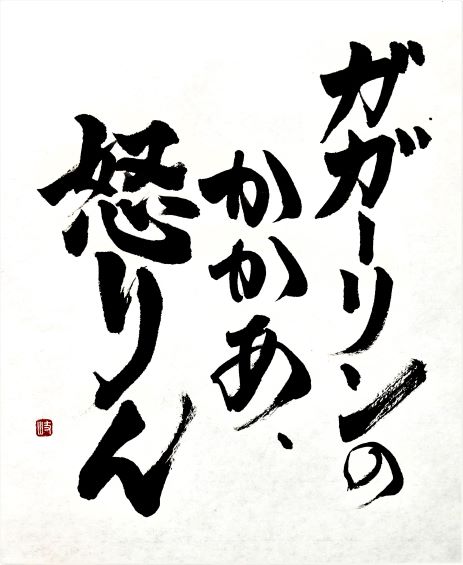 ガガーリンの
かかあ、
怒りん